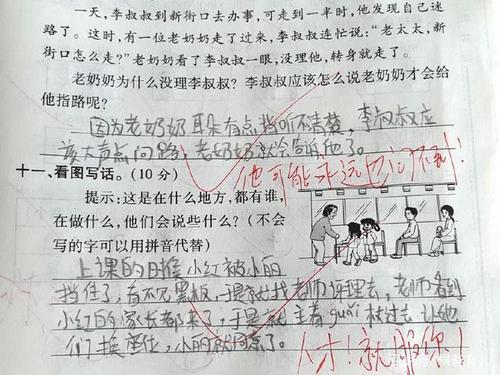 一天，李叔叔到新街口去办事，可走到一半时，他发现自己迷
路了。这时，有一位老奶奶走了过来，李叔叔连忙说：“老太太，新
街口怎么走？”老奶奶看了李叔叔一眼，没理他，转身就走了。
老奶奶为什么没理李叔叔？李叔叔应该怎么说老奶奶才会给
他指路呢？
因为老奶奶耳朵有点挡听不清楚，李叔叔应
该大声点问路，老奶奶就会告诉他了。
他可能永远也问不到！
十一、看图写话。(10 分)
提示：这是在什么地方，都有谁，
在做什么，他们会说些什么？(不会
写的字可以用拼音代替)
上课的时候小红被小丽
挡住了，看不见黑板，于是就找老师评理去，老师看到
小红的家长都来了，于是就主着guǎi杖过去让他
们换座位，小丽就同意了。
人才！就服你！